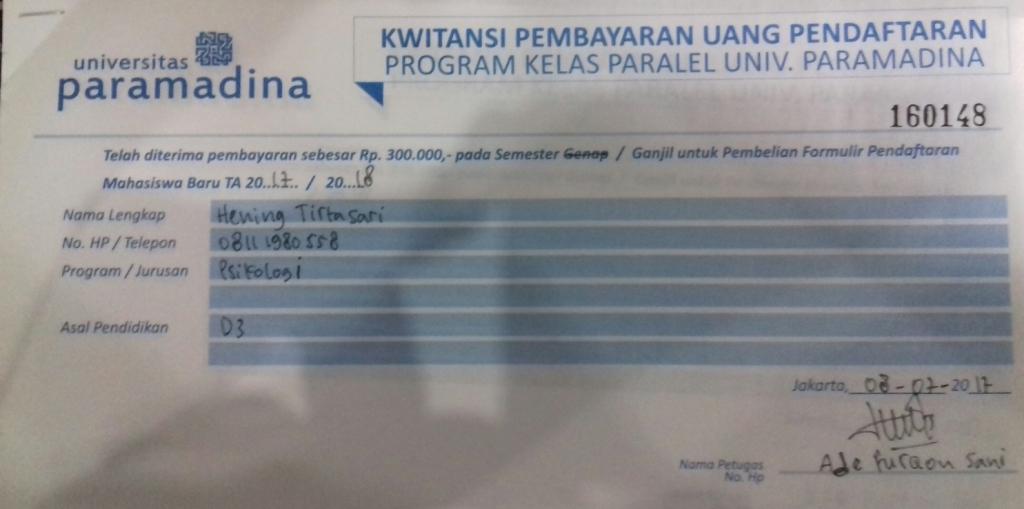 universitas
paramadina
KWITANSI PEMBAYARAN UANG PENDAFTARAN
PROGRAM KELAS PARALEL UNIV. PARAMADINA
160148
Telah diterima pembayaran sebesar Rp. 300.000,- pada Semester Genap / Ganjil untuk Pembelian Formulir Pendaftaran
Mahasiswa Baru TA 20..17.. / 20...18
Nama Lengkap Hening Tirtasari
No. HP / Telepon 08111980558
Program / Jurusan Psikologi
Asal Pendidikan D3
Jakarta, 08-07-2017
Nama Petugas Ade Furqon Sani
No. Hp